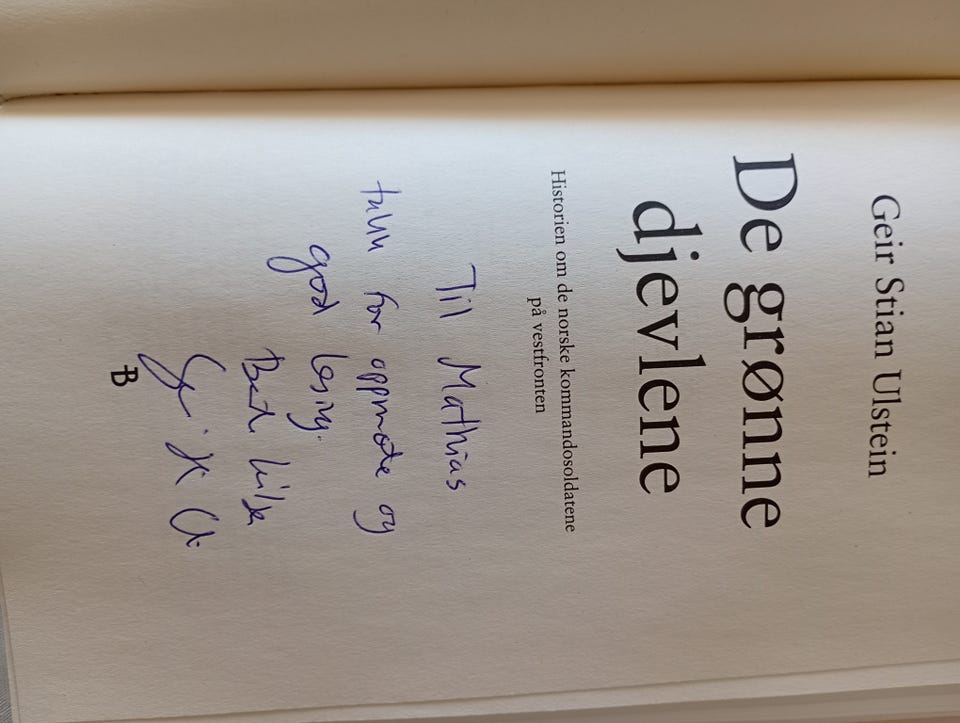 Geir Stian Ulstein
De grønne
djevlene
Historien om de norske kommandosoldatene
på vestfronten
Til Mathias
takk for oppmøte og
god lesing.
Beste hilsen
B